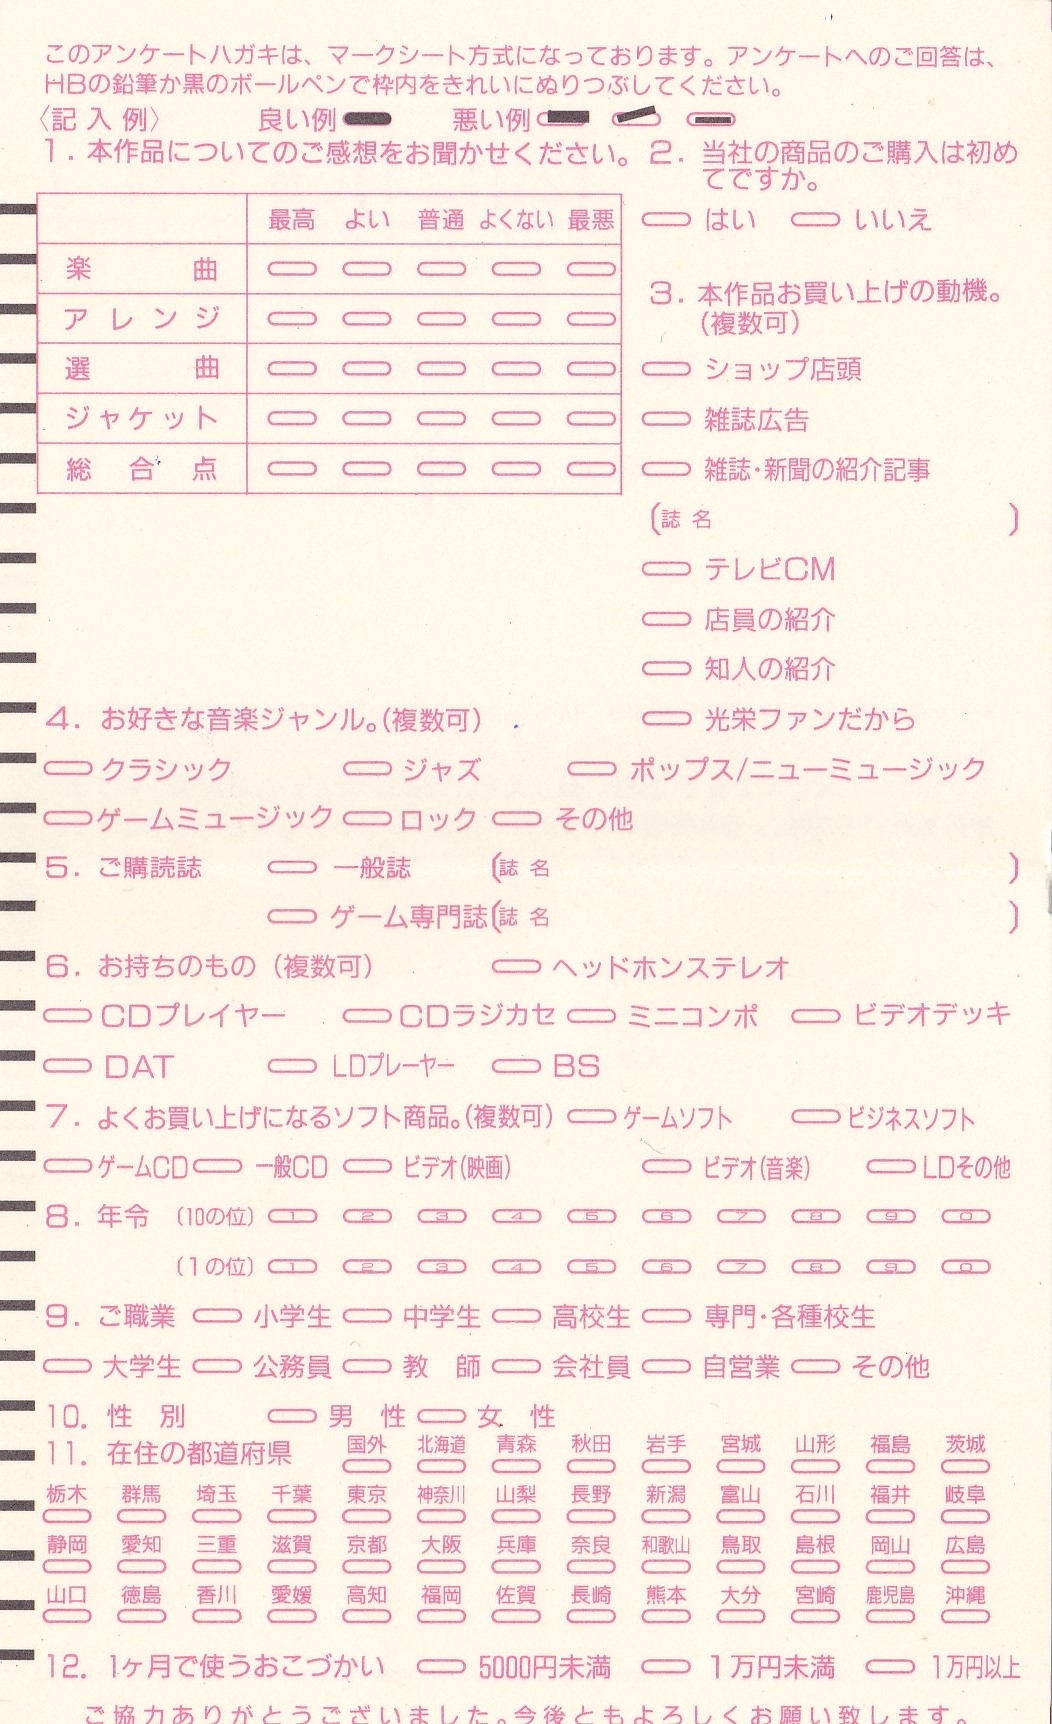 このアンケートハガキは、マークシート方式になっております。アンケートへのご回答は、
HBの鉛筆か黒のボールペンで枠内をきれいにぬりつぶしてください。
〈記入例〉 良い例 悪い例
1. 本作品についてのご感想をお聞かせください。
最高 よい 普通 よくない 最悪
楽曲
アレンジ
選曲
ジャケット
総合点
2. 当社の商品のご購入は初め
てですか。
はい いいえ
3. 本作品お買い上げの動機。
(複数可)
ショップ店頭
雑誌広告
雑誌・新聞の紹介記事
(誌名 )
テレビCM
店員の紹介
知人の紹介
光栄ファンだから
4. お好きな音楽ジャンル。(複数可)
クラシック ジャズ ポップス/ニューミュージック
ゲームミュージック ロック その他
5. ご購読誌 一般誌 (誌名 )
ゲーム専門誌(誌名 )
6. お持ちのもの(複数可) ヘッドホンステレオ
CDプレイヤー CDラジカセ ミニコンポ ビデオデッキ
DAT LDプレーヤー BS
7. よくお買い上げになるソフト商品。(複数可) ゲームソフト ビジネスソフト
ゲームCD 一般CD ビデオ(映画) ビデオ(音楽) LDその他
8. 年令 (10の位) 1 2 3 4 5 6 7 8 9 0
(1の位) 1 2 3 4 5 6 7 8 9 0
9. ご職業 小学生 中学生 高校生 専門・各種校生
大学生 公務員 教師 会社員 自営業 その他
10. 性別 男性 女性
11. 在住の都道府県 国外 北海道 青森 秋田 岩手 宮城 山形 福島 茨城
栃木 群馬 埼玉 千葉 東京 神奈川 山梨 長野 新潟 富山 石川 福井 岐阜
静岡 愛知 三重 滋賀 京都 大阪 兵庫 奈良 和歌山 鳥取 島根 岡山 広島
山口 徳島 香川 愛媛 高知 福岡 佐賀 長崎 熊本 大分 宮崎 鹿児島 沖縄
12. 1ヶ月で使うおこづかい 5000円未満 1万円未満 1万円以上
ご協力ありがとうございました。今後ともよろしくお願い致します。